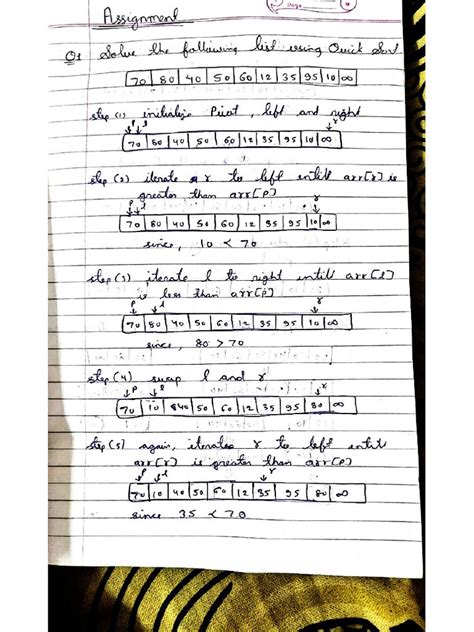 Page
Assignment
Q1 Solve the following list using Quick Sort
70 80 40 50 60 12 35 95 10 ∞
step (1) initialize Pivot, left and right
p l r
70 80 40 50 60 12 35 95 10 ∞
step (2) iterate r to left until arr[r] is
greater than arr[p]
p l r
70 80 40 50 60 12 35 95 10 ∞
since, 10 < 70
step (3) iterate l to right until arr[l]
is less than arr[p]
p l r
70 80 40 50 60 12 35 95 10 ∞
since, 80 > 70
step (4) swap l and r
p l r
70 10 840 50 60 12 35 95 80 ∞
step (5) again, iterates r to left until
arr[r] is greater than arr[p]
p l r
70 10 40 50 60 12 35 95 80 ∞
since 35 < 70